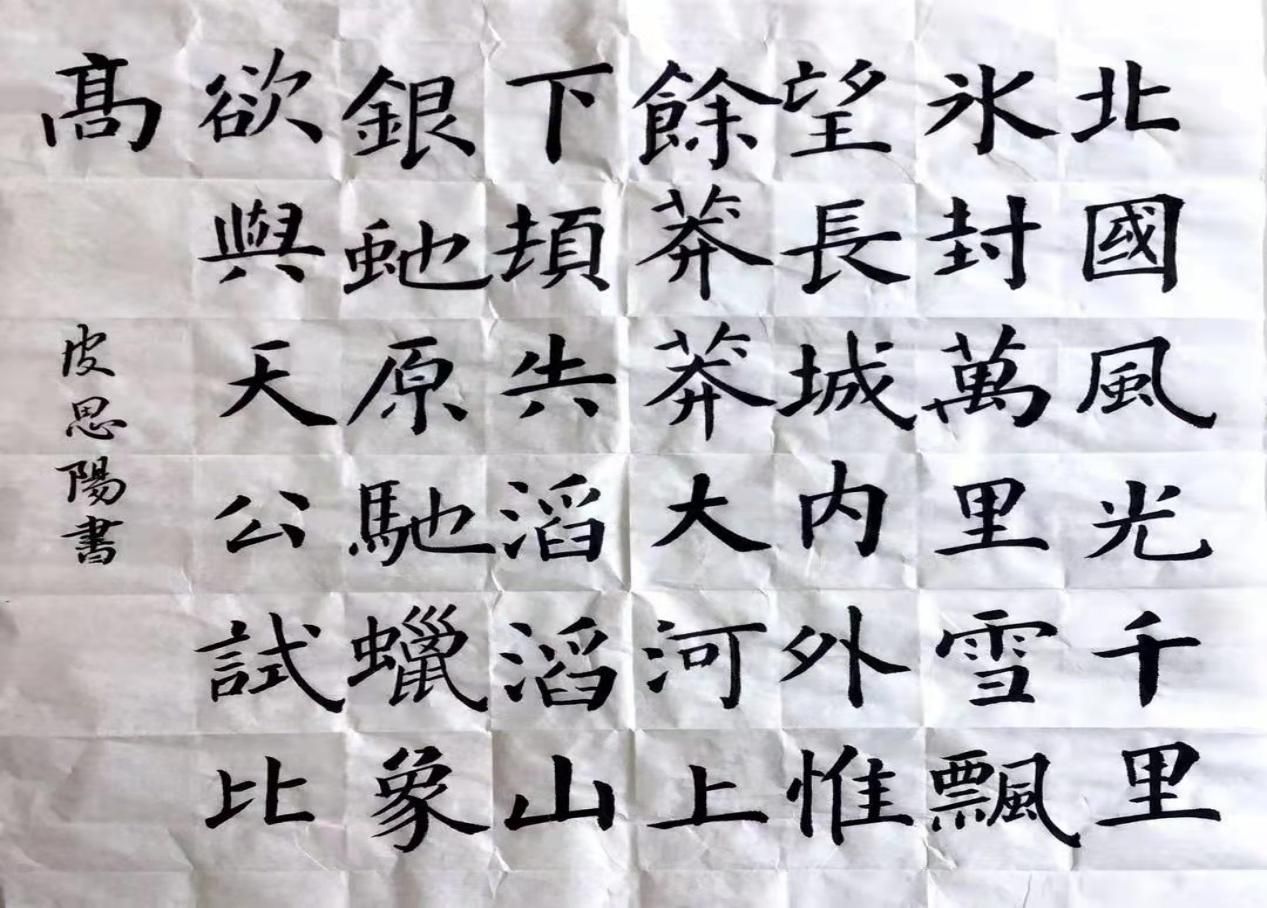 北國風光千里
氷封萬里雪飄
望長城内外惟
餘莽莽大河上
下頓失滔滔山
銀虵原馳蠟象
欲與天公試比
髙
皮思陽書